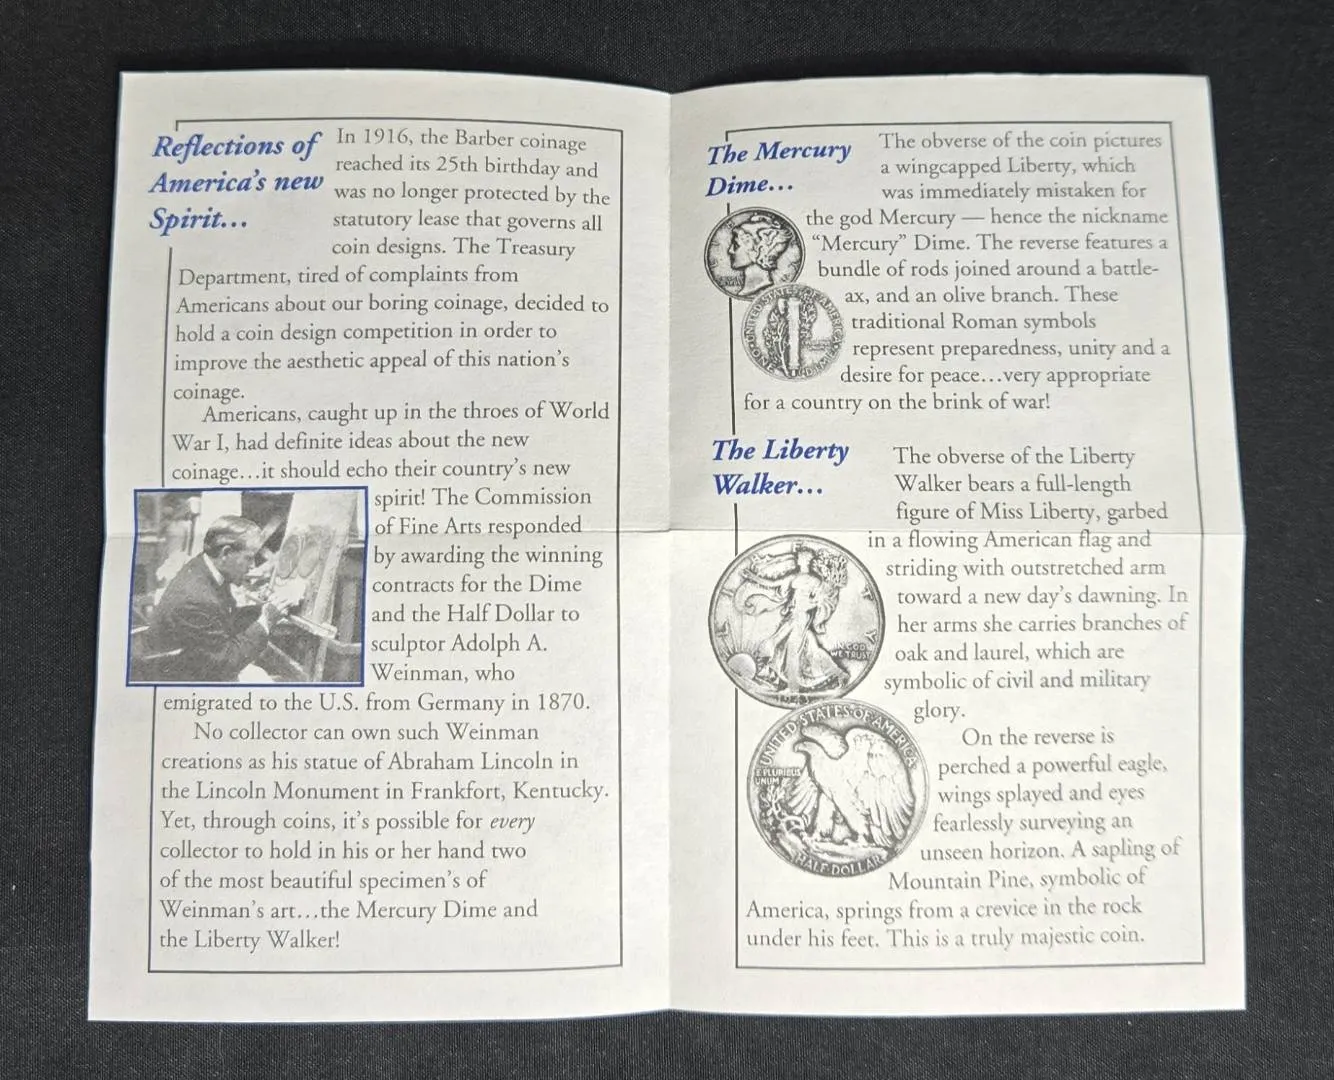 Reflections of
America's new
Spirit...
In 1916, the Barber coinage
reached its 25th birthday and
was no longer protected by the
statutory lease that governs all
coin designs. The Treasury
Department, tired of complaints from
Americans about our boring coinage, decided to
hold a coin design competition in order to
improve the aesthetic appeal of this nation's
coinage.
Americans, caught up in the throes of World
War I, had definite ideas about the new
coinage...it should echo their country's new
spirit! The Commission
of Fine Arts responded
by awarding the winning
contracts for the Dime
and the Half Dollar to
sculptor Adolph A.
Weinman, who
emigrated to the U.S. from Germany in 1870.
No collector can own such Weinman
creations as his statue of Abraham Lincoln in
the Lincoln Monument in Frankfort, Kentucky.
Yet, through coins, it's possible for every
collector to hold in his or her hand two
of the most beautiful specimen's of
Weinman's art...the Mercury Dime and
the Liberty Walker!
The Mercury
Dime...
The obverse of the coin pictures
a wingcapped Liberty, which
was immediately mistaken for
the god Mercury — hence the nickname
"Mercury" Dime. The reverse features a
bundle of rods joined around a battle-
ax, and an olive branch. These
traditional Roman symbols
represent preparedness, unity and a
desire for peace...very appropriate
for a country on the brink of war!
UNITED STATES OF AMERICA
ONE DIME
The Liberty
Walker...
The obverse of the Liberty
Walker bears a full-length
figure of Miss Liberty, garbed
in a flowing American flag and
striding with outstretched arm
toward a new day's dawning. In
her arms she carries branches of
oak and laurel, which are
symbolic of civil and military
glory.
On the reverse is
perched a powerful eagle,
wings splayed and eyes
fearlessly surveying an
unseen horizon. A sapling of
Mountain Pine, symbolic of
America, springs from a crevice in the rock
under his feet. This is a truly majestic coin.
IN GOD
WE TRUST
1943
UNITED STATES OF AMERICA
E PLURIBUS
UNUM
HALF DOLLAR